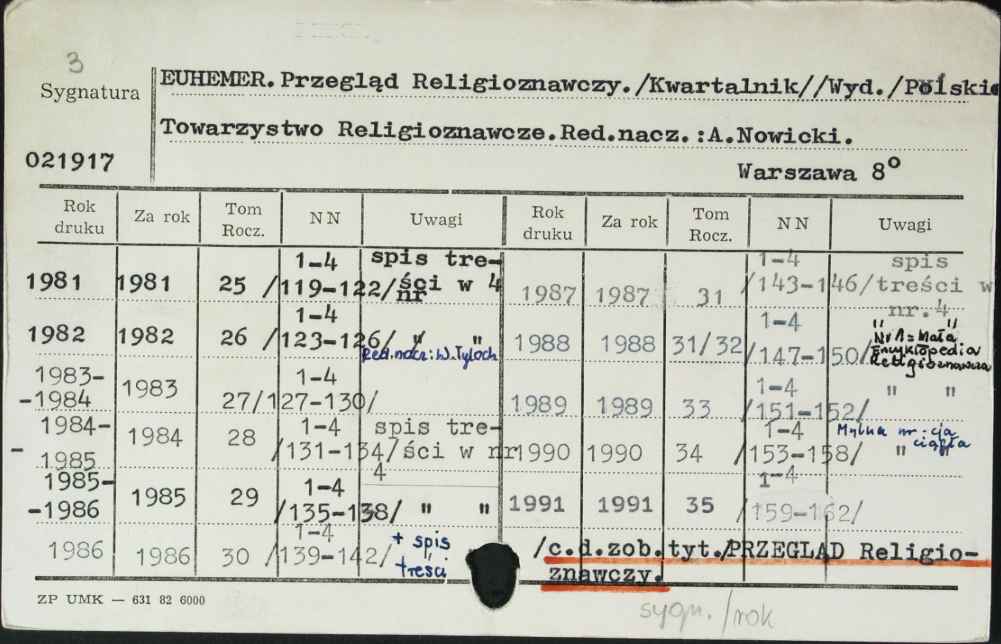 3
Sygnatura
EUHEMER.Przegląd Religioznawczy./Kwartalnik//Wyd./Polskie
Towarzystwo Religioznawcze.Red.nacz.:A.Nowicki.
021917
Warszawa 8°
Rok druku Za rok Tom Rocz. NN Uwagi Rok druku Za rok Tom Rocz. NN Uwagi
1981 1981 25 1-4 /119-122/ spis treści w nr 4
1982 1982 26 1-4 /123-126/ " "
Red.nacz.:W.Tyloch
1983-
-1984 1983 27 1-4 /127-130/
1984-
-1985 1984 28 1-4 /131-134/ spis tre-
ści w nr
4
1985-
-1986 1985 29 1-4 /135-138/ " "
1986 1986 30 1-4 /139-142/ + spis
treści
1987 1987 31 1-4 /143-146/ spis
treści w
nr.4
1988 1988 31/32 1-4 /147-150/ " "
Nr 1 = Mała
Encyklopedia
Religioznawcza
1989 1989 33 1-4 /151-152/ " "
1990 1990 34 1-4 /153-158/ " "
Mylna nr-cja
ciągła
1991 1991 35 1-4 /159-162/
/c.d.zob.tyt./PRZEGLĄD Religio-
znawczy.
ZP UMK — 631 82 6000
sygn./rok